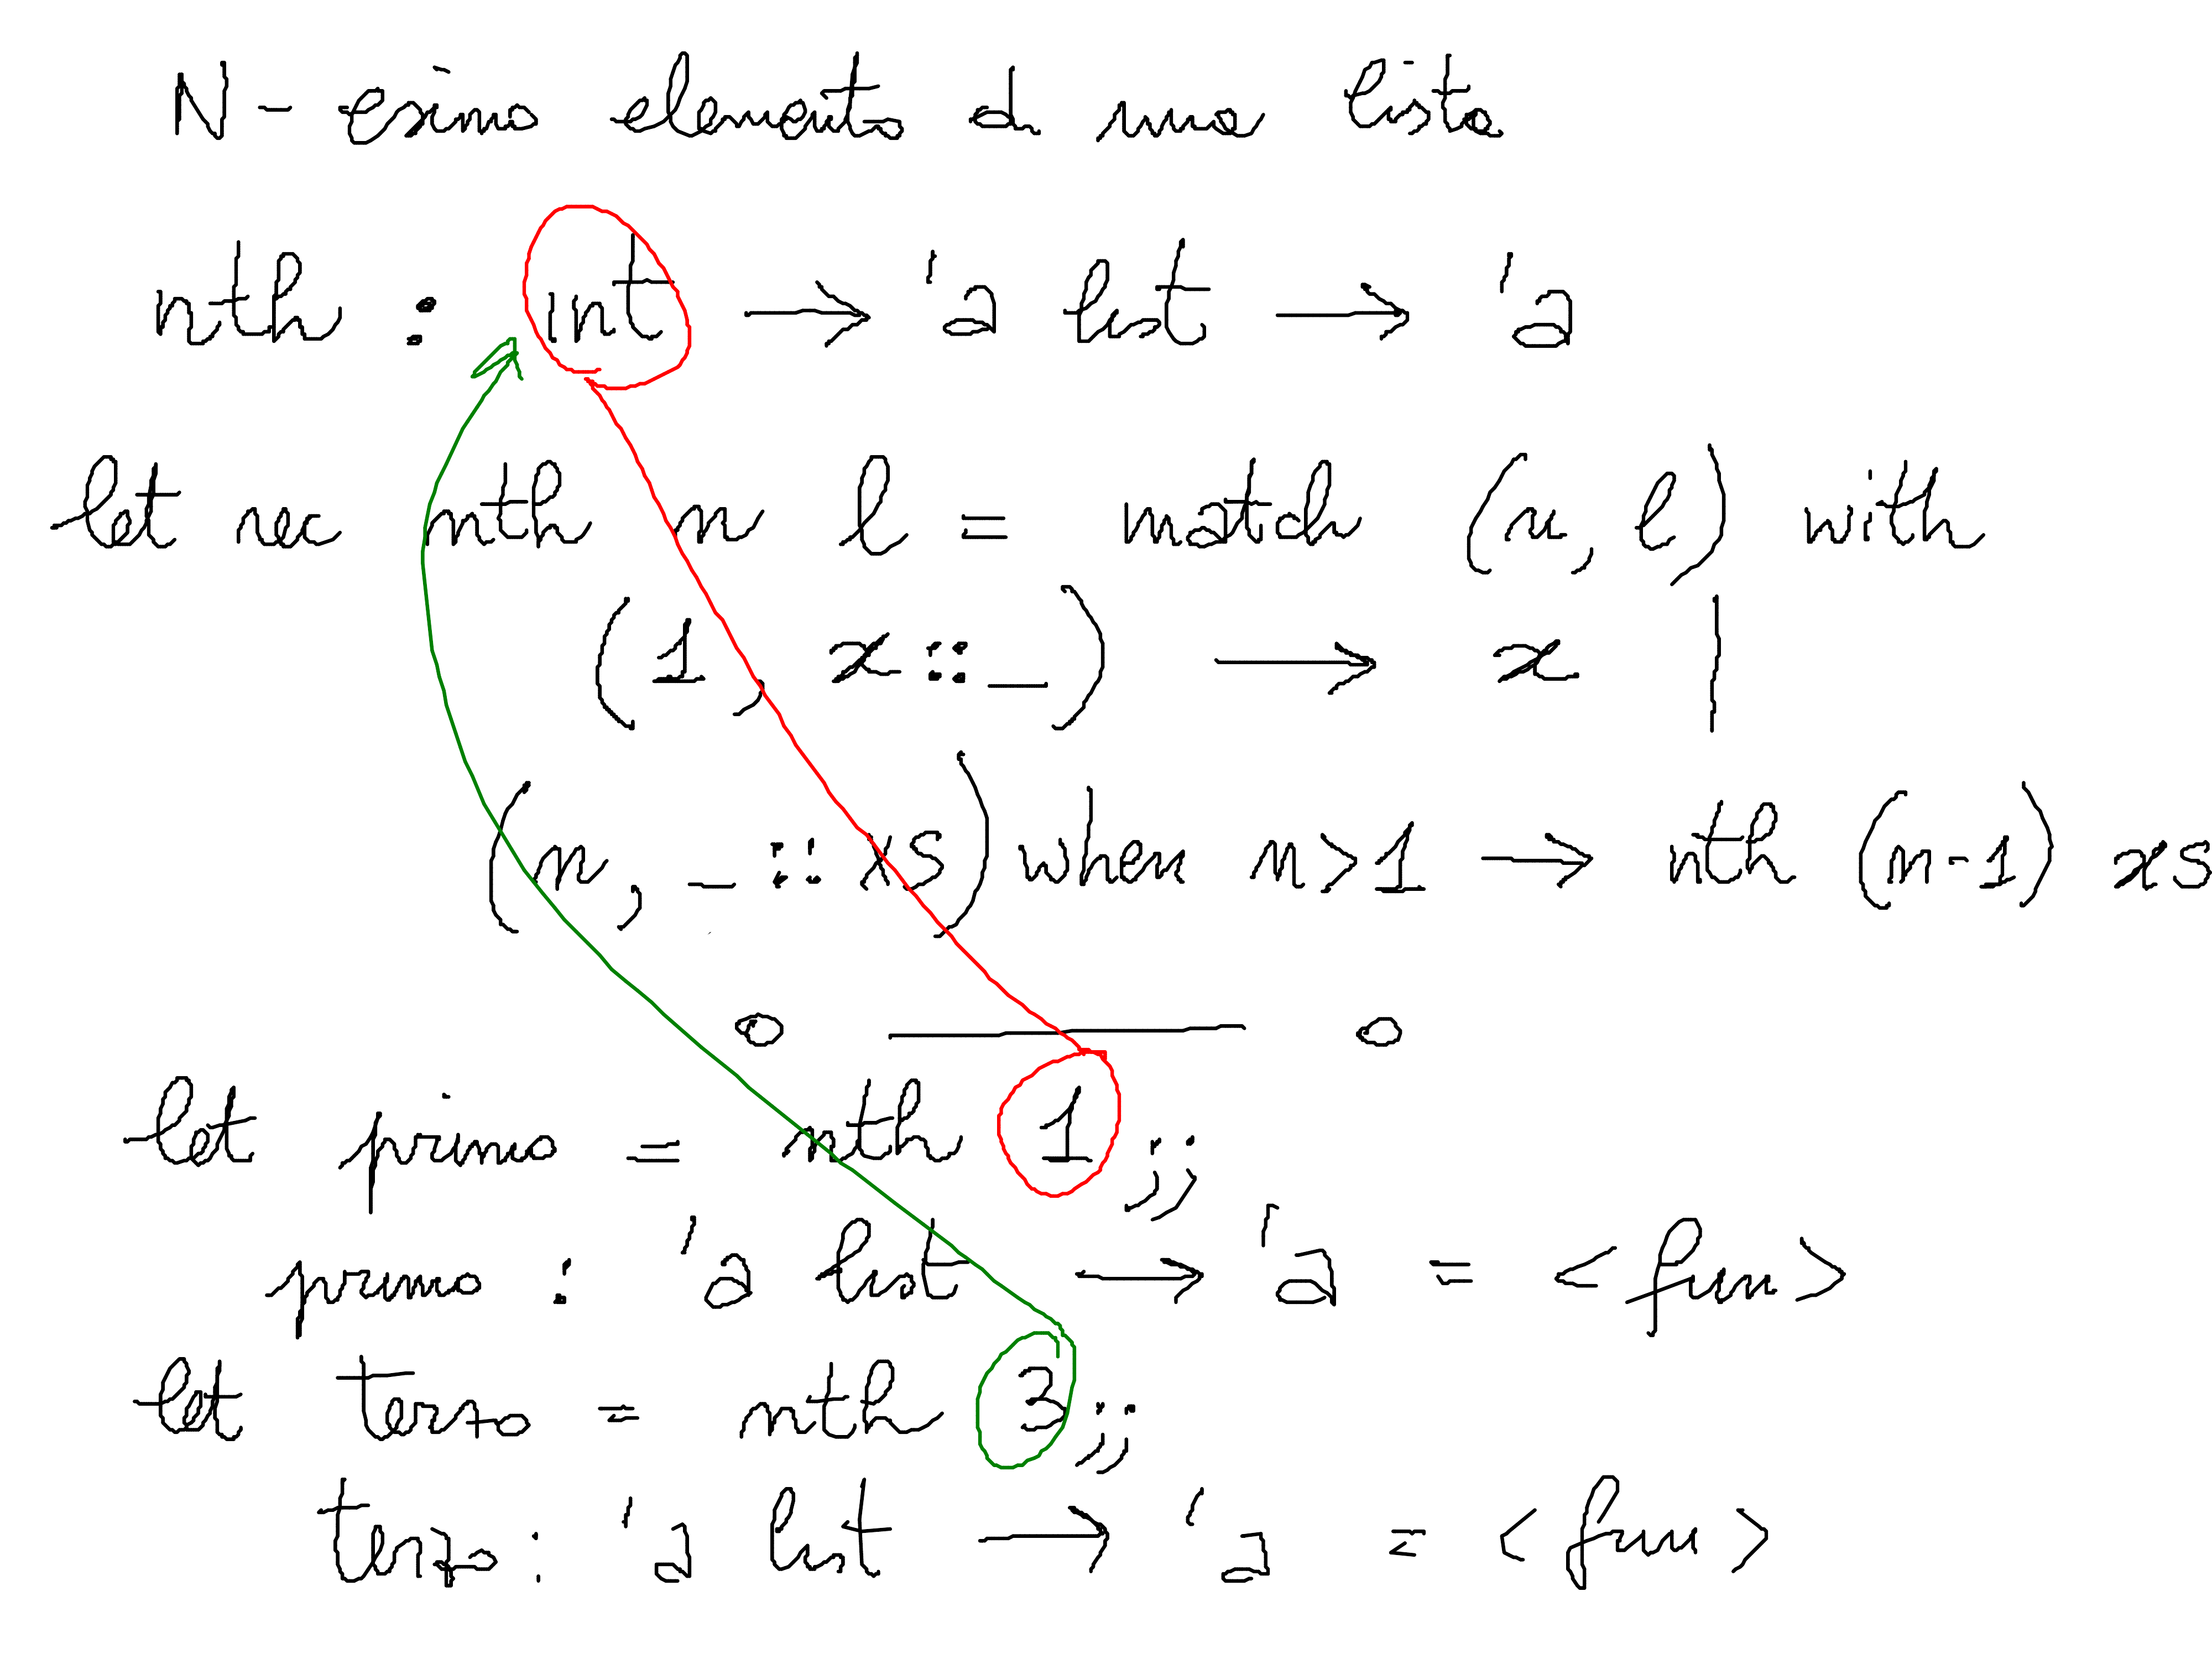 N-esimo elemento di una lista
nth : int → 'a list → 'a
let rec nth n l = match (n, l) with
(1, x::_) → x |
(n, _::xs) when n>1 → nth (n-1) xs
let primo = nth 1;;
primo : 'a list → 'a = <fun>
let terzo = nth 3;;
terzo : 'a list → 'a = <fun>